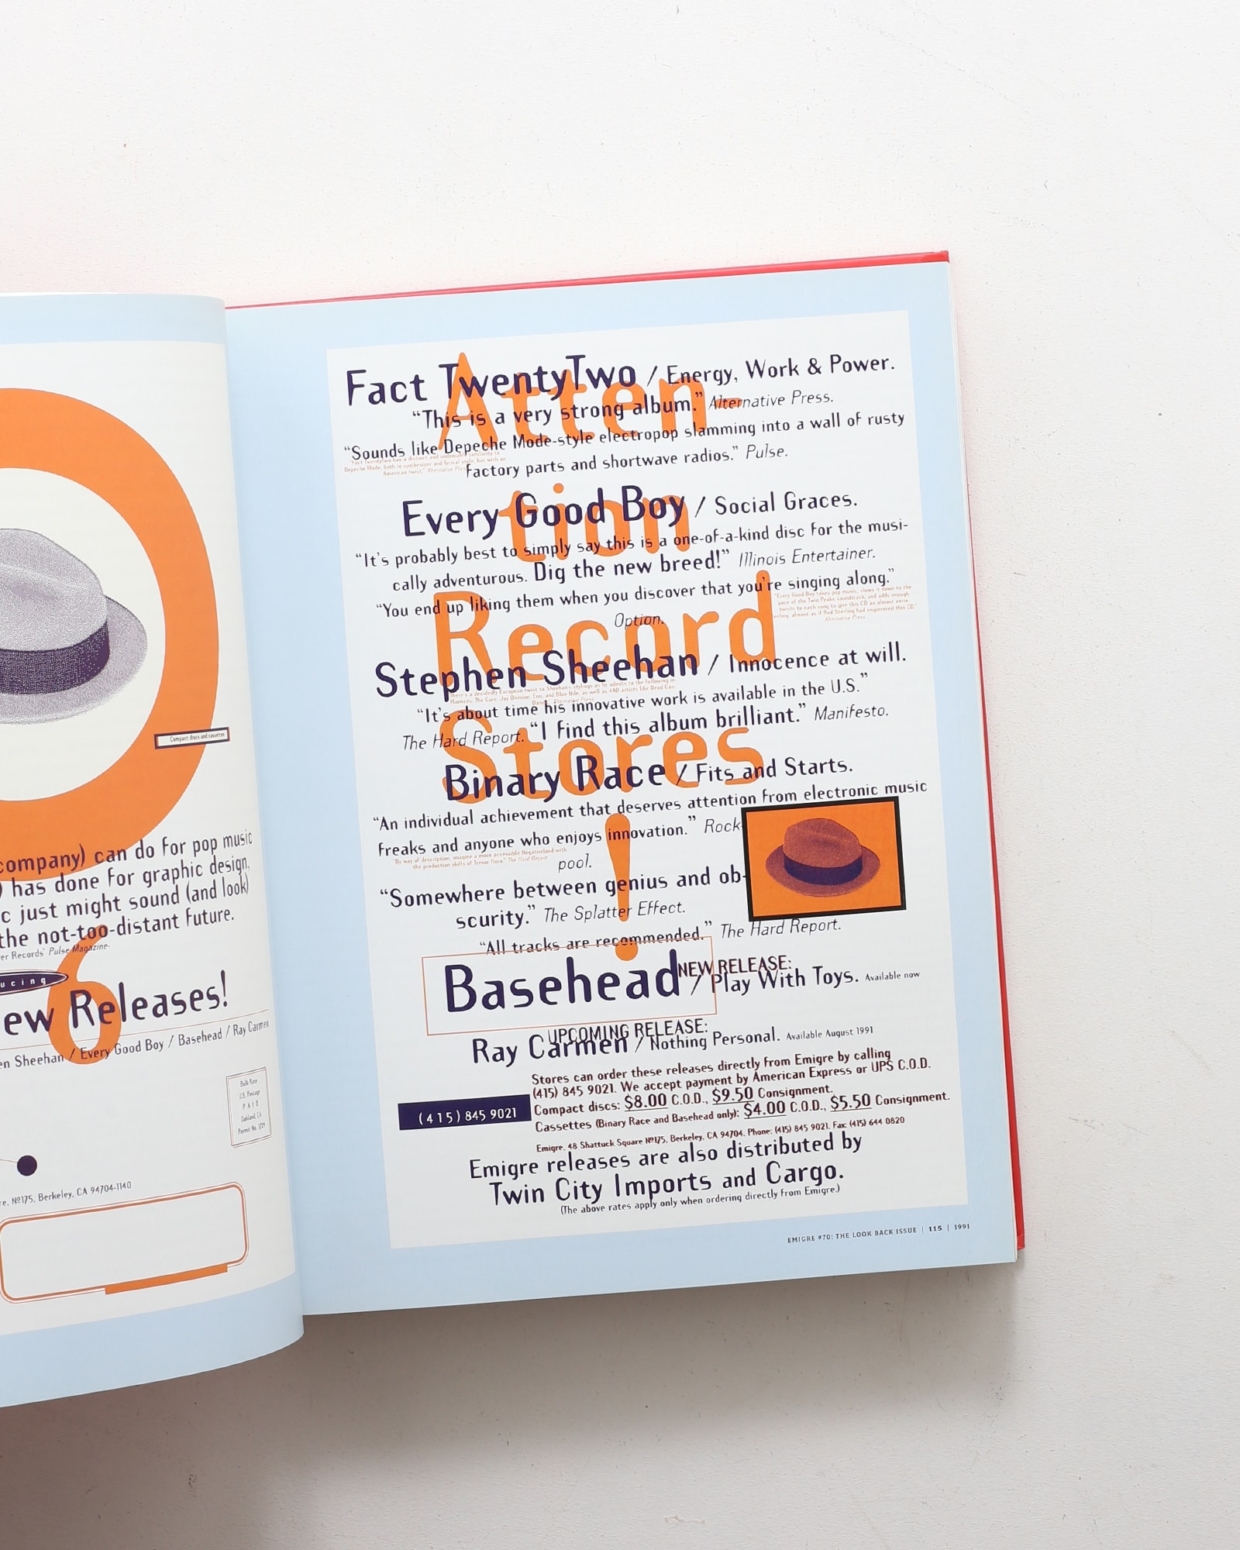 company) can do for pop music
has done for graphic design,
c just might sound (and look)
the not-too-distant future.
er Records' Pulse Magazine.
ucing
ew Releases!
en Sheehan / Every Good Boy / Basehead / Ray Carmen
6
Compact discs and cassettes
Bulk Rate
U.S. Postage
PAID
Oakland, CA
Nº175, Berkeley, CA 94704-1140
Atten-
tion
Record
Stores
!
Fact TwentyTwo / Energy, Work & Power.
“This is a very strong album.” Alternative Press.
“Sounds like Depeche Mode-style electropop slamming into a wall of rusty
factory parts and shortwave radios.” Pulse.
Every Good Boy / Social Graces.
“It's probably best to simply say this is a one-of-a-kind disc for the musi-
cally adventurous. Dig the new breed!” Illinois Entertainer.
“You end up liking them when you discover that you're singing along.”
Option.
Stephen Sheehan / Innocence at will.
“It's about time his innovative work is available in the U.S.”
The Hard Report. “I find this album brilliant.” Manifesto.
Binary Race / Fits and Starts.
“An individual achievement that deserves attention from electronic music
freaks and anyone who enjoys innovation.” Rock
pool.
“Somewhere between genius and ob-
scurity.” The Splatter Effect.
“All tracks are recommended.” The Hard Report.
NEW RELEASE:
Basehead / Play With Toys. Available now
UPCOMING RELEASE:
Ray Carmen / Nothing Personal. Available August 1991
Stores can order these releases directly from Emigre by calling
(415) 845 9021. We accept payment by American Express or UPS C.O.D.
Compact discs: $8.00 C.O.D., $9.50 Consignment.
Cassettes (Binary Race and Basehead only): $4.00 C.O.D., $5.50 Consignment.
(415) 845 9021
Emigre, 48 Shattuck Square Nº175, Berkeley, CA 94704. Phone: (415) 845 9021. Fax: (415) 644 0820
Emigre releases are also distributed by
Twin City Imports and Cargo.
(The above rates apply only when ordering directly from Emigre.)
EMIGRE #70: THE LOOK BACK ISSUE | 115 | 1991